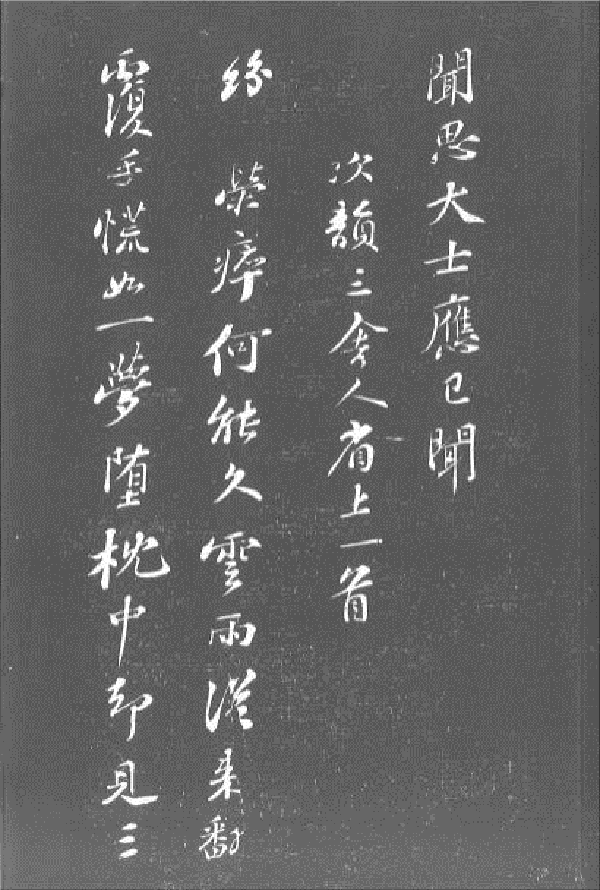 聞思大士應已聞
次韻三舍人省上一首
紛 榮瘁何能久雲雨從来翻
覆手慌如一夢堕枕中却見三